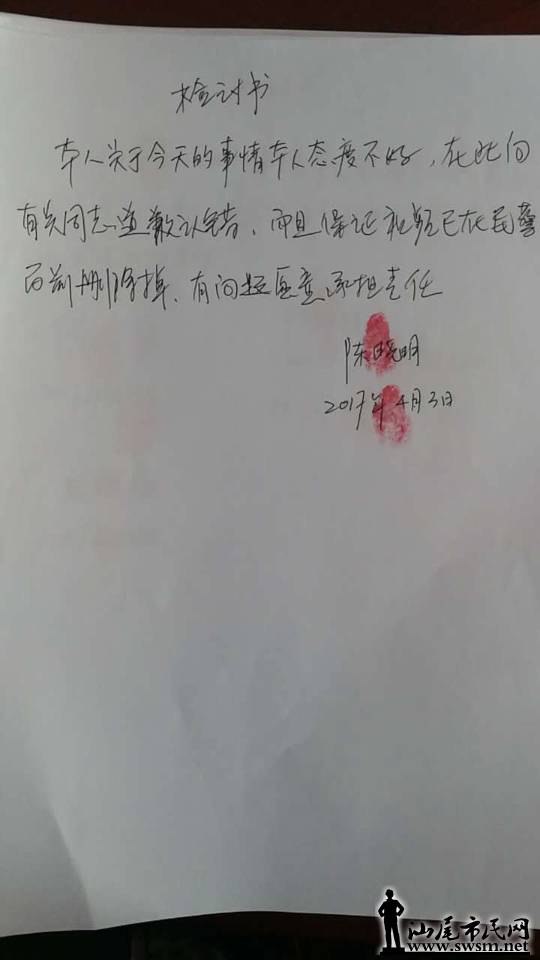 检讨书
本人关于今天的事情本人态度不好,在此向
有关同志道歉认错,而且保证视频已在民警
面前删除掉,有问题愿意承担责任
陈晓明
2017年4月3日
汕尾市民网
www.swsm.net